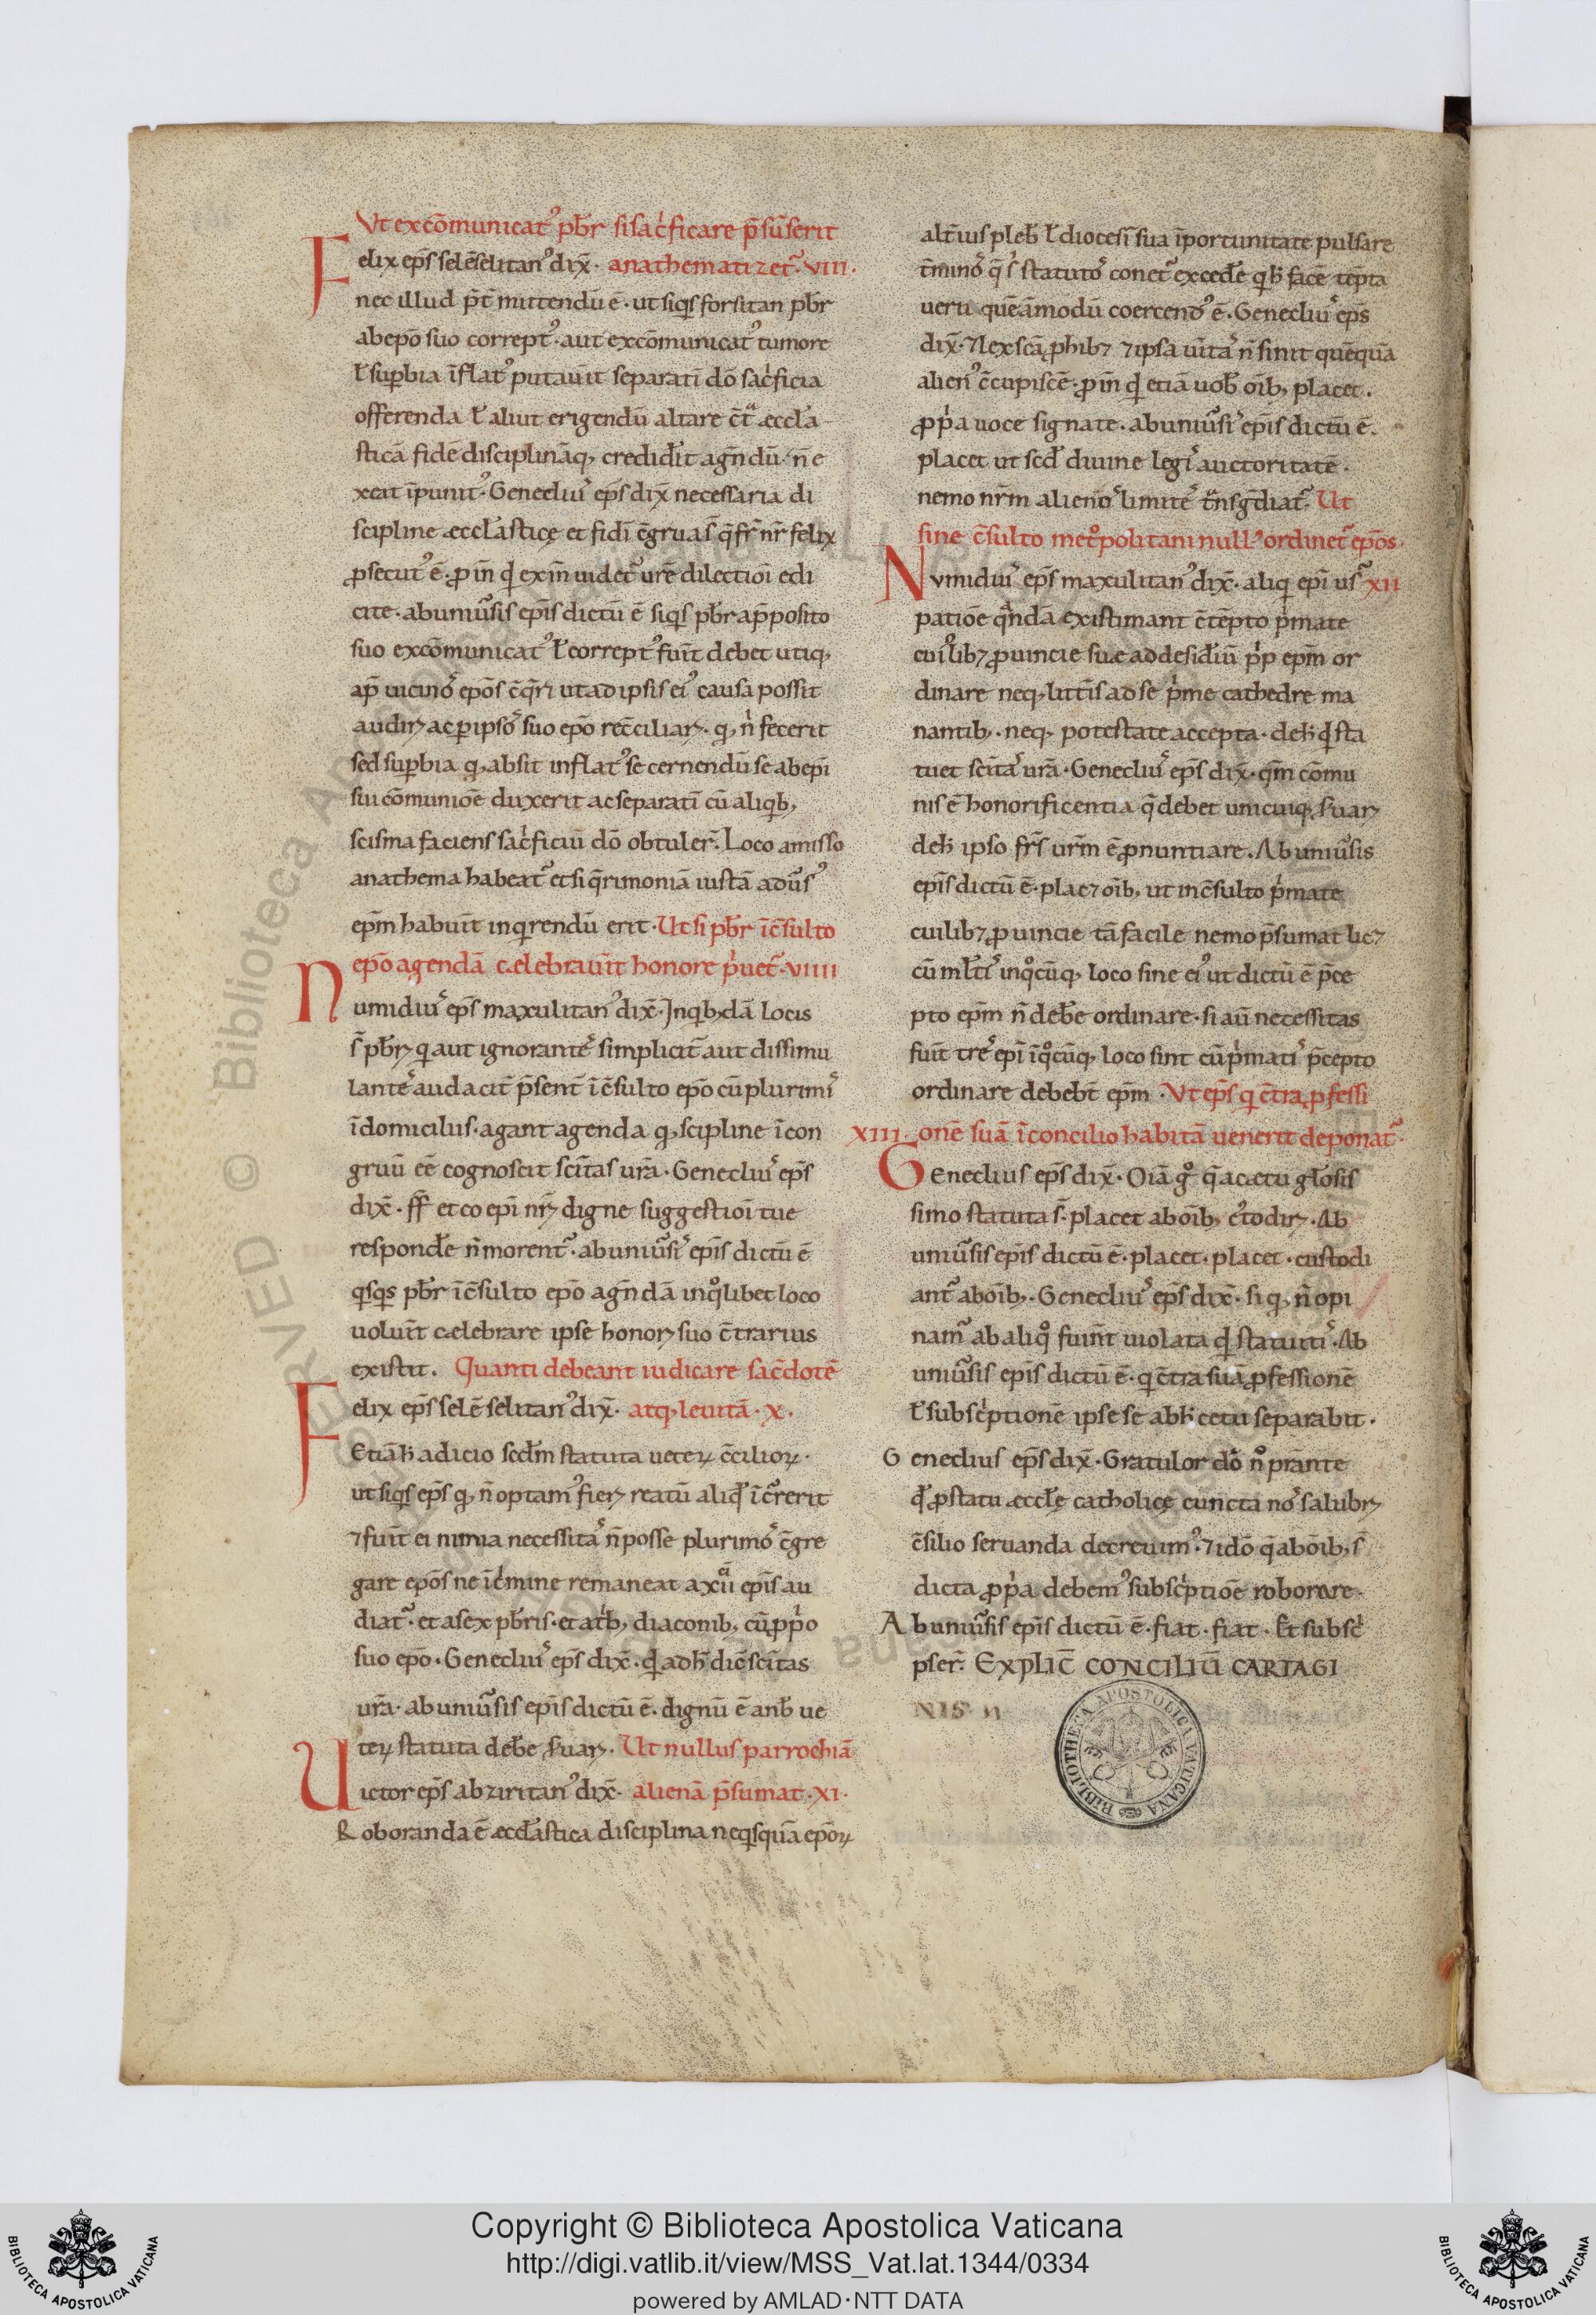 Vt excōmunicatꝰ pb̄r si sac̓ficare p̄sūserit
Felix ep̄s selēselitanꝰ dix̄. anathematizet᷑. VIII.
nec illud p̄t̄ mittendū ē. ut siqͥs forsitan pb̄r
ab ep̄o suo correptꝰ. aut excōmunicatꝰ tumore
ł sup̱bia īflatꝰ putau̅it separati dō sac̓ficia
offerenda ł aliut erigendū altare c̄tͣ æccl̄a
sticā fidē disciplināq, credid̄it agn̄dū. n̄ e
xeat īpunitꝰ. Genecliuˢ ep̄s dix̄ necessaria di
scipline æccl̄asticę et fidī c̄grua s̄ q̄ fr̄ nr̄ felix
ꝓsecutꝰ ē. ꝓ in̄ qͩ ex in̄ uidet᷑ ur̄ē dilectioī edi
cite. ab uniu̅sis ep̄is dictū ē siqͥs pb̄r a p̄posito
suo excōmunicatꝰ ł correptꝰ fuīt debet utiq,
ap̄ uicinoˢ ep̄os c̄q̄ri ut ad ipsis eiꝰ causa possit
audiri ac ꝑ ipsoˢ suo ep̄o rec̄ciliari. q, n̄ fecerit
sed sup̱bia q, absit inflatꝰ se cernendū se ab ep̄i
sui cōmuniōe duxerit ac separati cū aliqͥb,
scisma faciens sac̓ficiū dō obtuler̄. Loco amisso
anathema habeat᷑ et si q̄rimoniā iustā adu̅sꝰ
ep̄m habuīt inqͥrendū erit. Ut si pb̄r īc̄sulto
ep̄o agendā cælebrau̅it honore p̓uet᷑. VIIII
Numidiuˢ ep̄s maxulitanꝰ dix̄. Inqͥb,dā locis
s̄ pb̄ri qͥ aut ignoranteˢ simplicit̄ aut dissimu
lanteˢ audacit̄ p̄sent̄ īc̄sulto ep̄o cū plurimiˢ
ī domiciliis. agant agenda q, scipline īcon
gruū eē cognoscit sc̄itas ur̄a. Genecliuˢ ep̄s
dix̄. ff̄ et co epī nr̄i digne suggestioī tue
respond̄e n̄ morent᷑. ab uniu̅siˢ ep̄is dictū ē
qͥsqͥs pb̄r īc̄sulto ep̄o agn̄dā inqͦlibet loco
uoluīt cælebrare ipse honori suo c̄trarius
existit. Quanti debeant iudicare sac̄dotē
Felix ep̄s selēselitanꝰ dix̄. atq, leuitā. X.
Etiā ħ adicio scd̄m statuta ueteꝝ c̄cilioꝝ.
ut siqͥs ep̄s q, n̄ optamꝰ fieri reatū aliqͩ īc̄rerit
⁊ fuīt ei nimia necessitaˢ n̄ posse plurimoˢ c̄gre
gare ep̄os ne īc̓mine remaneat a xii ep̄is au
diat᷑. et a sex pb̄ris. et a t̓b, diaconib, cū pp̓o
suo ep̄o. Genecliuˢ ep̄s dix̄. qͩ ad ħ dic̄ sc̄itas
ur̄a. ab uniu̅sis ep̄is dictū ē. dignū ē anb̄ ue
teꝝ statuta deb̄e s̓uari. Ut nullus parrochiā
Uictor ep̄s abziritanꝰ dix̄. alienā p̄sumat. XI.
Roboranda ē æccl̄astica disciplina neqͥsquā ep̄oꝝ
alt̄ius pleb̄ ł diocesī sua īportunitate pulsare
t̄minoˢ q̄ s̄ statutoˢ conet᷑ exced̄e qͥ ħ facē tēpta
uerit quēāmodū coercendꝰ ē. Genecliuˢ ep̄s
dix̄. ⁊ lex sc̄a ꝓhibet ⁊ ipsa uīt̄aˢ n̄ sinit quēquā
alienꝰ c̄cupiscē. ꝓ in̄ qͩ etiā uob̄ oīb, placet.
ꝓp̓a uoce signate. ab uniu̅siˢ ep̄is dictū ē.
placet ut scd̄ diuine legiˢ auctoritatē.
nemo nr̄m alienoˢ limiteˢ tͣnsgd̄iat᷑. Ut
sine c̄sulto metͦpolitani nullꝰ ordinet᷑ ep̄os.
Numidiuˢ ep̄s maxulitanꝰ dix̄. aliqͥ epī usͬ XII
patiōe qͣndā existimant c̄tēpto p̓mate
cuiꝰlibet ꝓuincie suæ ad desid̄iū p̓p ep̄m or
dinare neq, litt̄is ad se p̓me cathedre ma
nantib,. neq, potestate accepta. de ħ qͩ sta
tuet sc̄itaˢ ur̄a. Genecliuˢ ep̄s dix̄. qm̄ cōmu
nis ē honorificentia q̄ debet unicuiq, s̓uari
de ħ ipso fr̄s ur̄m ē ꝓnuntiare. Ab uniu̅sis
ep̄is dictū ē. placet oīb, ut inc̄sulto p̓mate
cuilibet ꝓuincie tā facile nemo p̄sumat licet
cū ml̄tiˢ inqͦcūq, loco sine eiꝰ ut dictū ē p̄ce
pto ep̄m n̄ deb̄e ordinare. si au̅ necessitas
fuīt treˢ epī īqͦcūq, loco sint cū p̓matiˢ p̄cepto
ordinare debebt̄ ep̄m. Vt ep̄s qͥ c̄tra ꝓfessi
XIII. onē suā ī concilio habitā uenerit deponat᷑.
Geneclius ep̄s dix̄. Oīa gͦ q̄ a cætu gl̄osis
simo statuta s̄. placet ab oīb, c̓todiri. Ab
uniu̅sis ep̄is dictū ē. placet. placet. custodi
ant᷑ ab oīb,. Genecliuˢ ep̄s dix̄. si q, n̄ opi
namˢ ab aliqͦ fuint̄ uiolata qͩ statuitiˢ. Ab
uniu̅sis ep̄is dictū ē. qͥ c̄tra suā ꝓfessionē
ł subsc̓ptionē ipse se ab ħ cetu separabit.
Geneclius ep̄s dix̄. Gratulor dō nͦ p̄rante
qͩ ꝓ statu æccl̄ę catholicę cuncta noˢ salubri
c̄silio seruanda decreuimꝰ. ⁊ idō q̄ ab oīb, s̄
dicta ꝓp̓a debemꝰ subsc̓ptiōe roborare.
Ab uniu̅sis ep̄is dictū ē. fiat. fiat. Et subsc̓
pser̄. EXPLIC̄ CONCILIŪ CARTAGI
NIS. II
BIBLIOTHECA APOSTOLICA VATICANA
Copyright © Biblioteca Apostolica Vaticana
http://digi.vatlib.it/view/MSS_Vat.lat.1344/0334
powered by AMLAD·NTT DATA
BIBLIOTECA APOSTOLICA VATICANA
BIBLIOTECA APOSTOLICA VATICANA